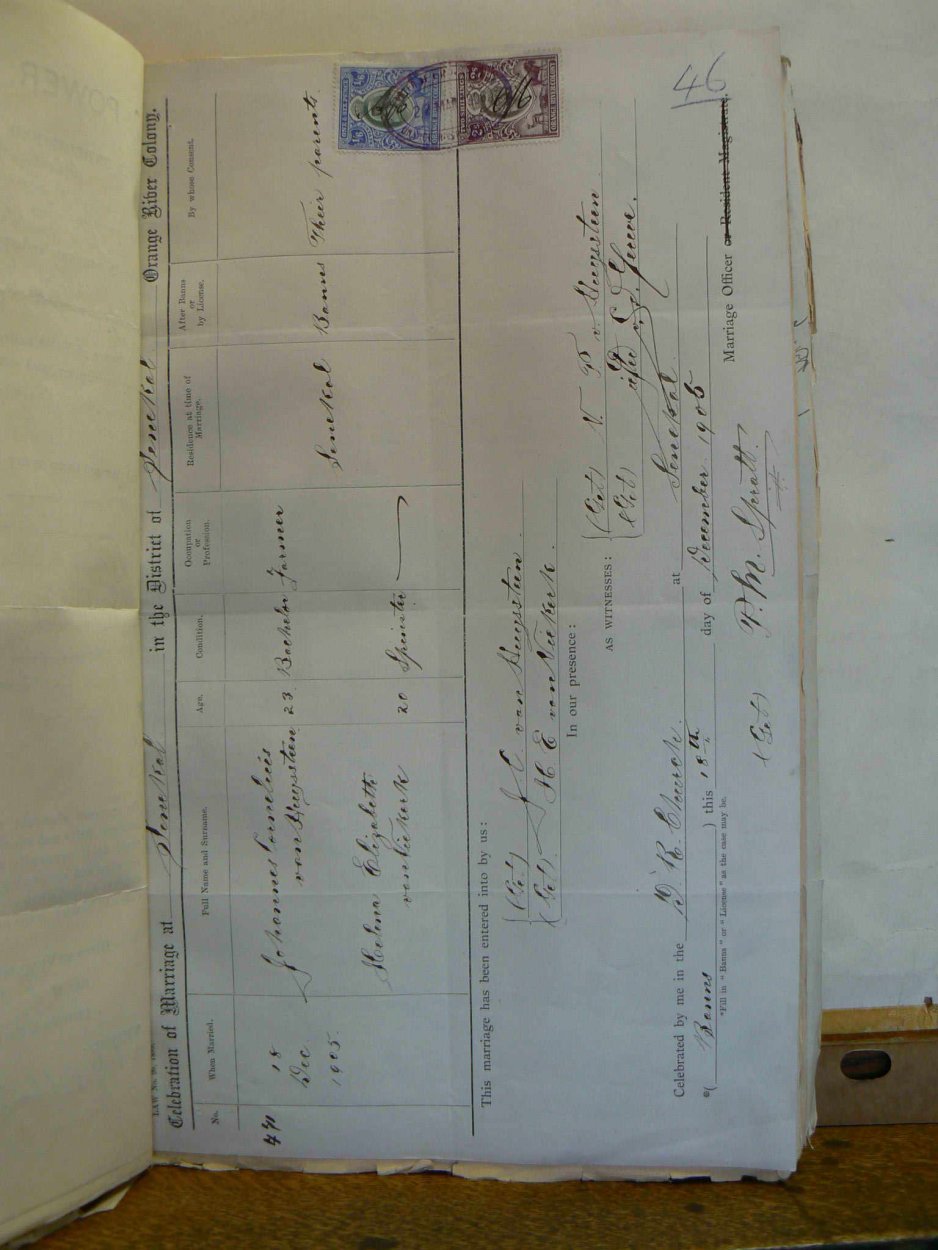 POWER
LAW No. 26, 1899.
Celebration of Marriage at Senekal in the District of Senekal Orange River Colony.
No. When Married. Full Name and Surname. Age. Condition. Occupation or Profession. Residence at time of Marriage. After Banns or by License. By whose Consent.
18 Dec 1905. Johannes Cornelius van Huyssteen 23 Bachelor Farmer
Senekal Banns Their parents
Helena Elizabeth van Niekerk 20 Spinster
This marriage has been entered into by us:
(Get) J C van Huyssteen.
(Get) H E van Niekerk.
In our presence:
AS WITNESSES:
(Get) v. Huyssteen
(Get)
Celebrated by me in the D. R. Church. at Senekal.
*( Banns ) this 18th day of December 1905
*Fill in "Banns" or "License" as the case may be.
(Get) P. M. Spratt.
Marriage Officer or Resident Magistrate.
46